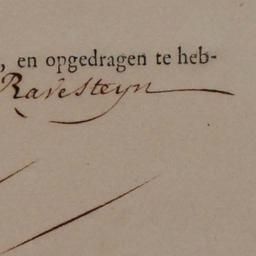 , en opgedragen te heb-
Ravesteyn